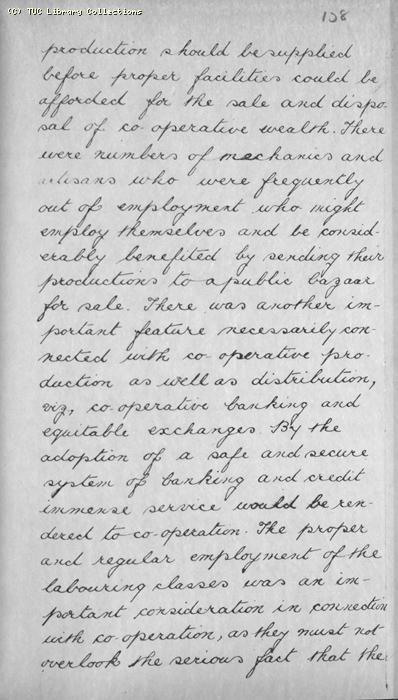 (C) TUC Library Collections
138
production should be supplied
before proper facilities could be
afforded for the sale and dispo-
sal of co-operative wealth. There
were numbers of mechanics and
artisans who were frequently
out of employment who might
employ themselves and be consid-
erably benefited by sending their
productions to a public bazaar
for sale. There was another im-
portant feature necessarily con-
nected with co-operative pro-
duction as well as distribution,
viz, co-operative banking and
equitable exchanges. By the
adoption of a safe and secure
system of banking and credit
immense service would be ren-
dered to co-operation. The proper
and regular employment of the
labouring classes was an im-
portant consideration in connection
with co-operation, as they must not
overlook the serious fact that the